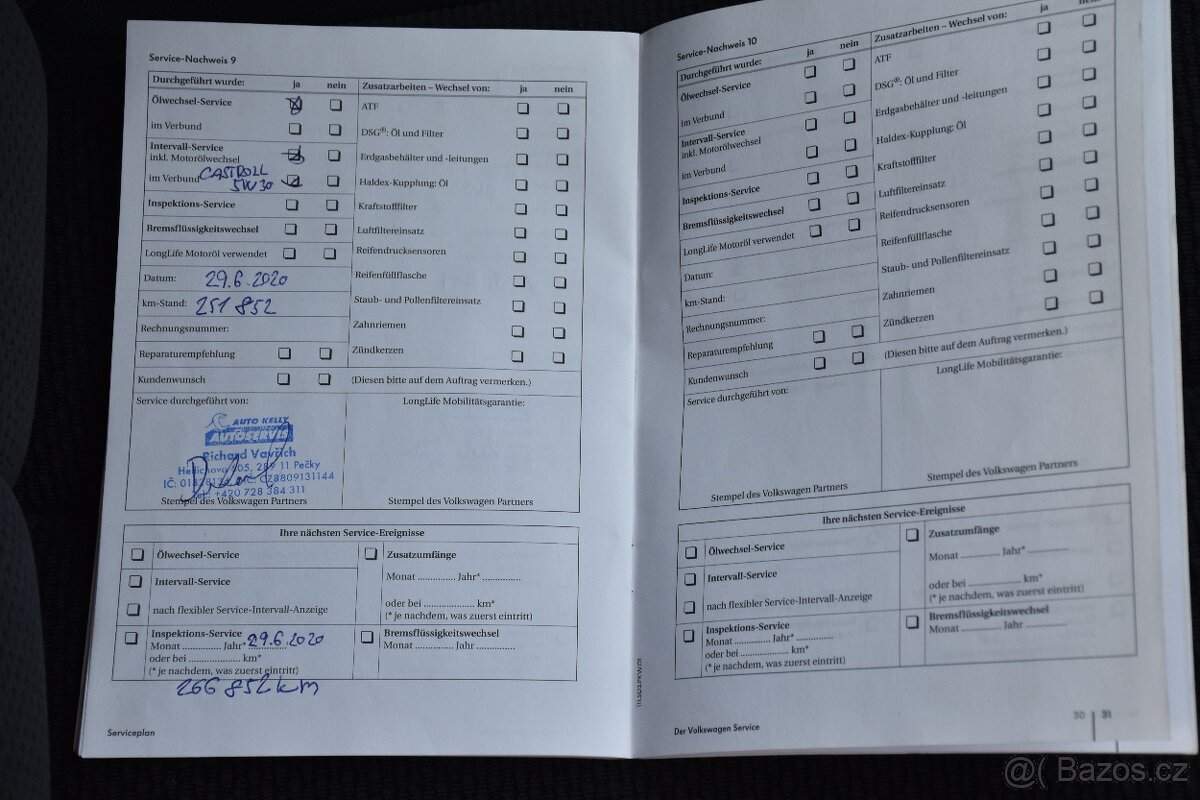 Service-Nachweis 9
Durchgeführt wurde: ja nein Zusatzarbeiten – Wechsel von: ja nein
Ölwechsel-Service ATF
im Verbund DSG®: Öl und Filter
Intervall-Service
inkl. Motorölwechsel Erdgasbehälter und -leitungen
im Verbund CASTROLL Haldex-Kupplung: Öl
5W30
Inspektions-Service Kraftstofffilter
Bremsflüssigkeitswechsel Luftfiltereinsatz
LongLife Motoröl verwendet Reifendrucksensoren
Datum: 29.6.2020 Reifenfüllflasche
km-Stand: 251 852 Staub- und Pollenfiltereinsatz
Rechnungsnummer: Zahnriemen
Reparaturempfehlung Zündkerzen
Kundenwunsch (Diesen bitte auf dem Auftrag vermerken.)
Service durchgeführt von: LongLife Mobilitätsgarantie:
AUTO KELLY
AUTOSERVIS
Richard Vavřich
605, 289 11 Pečky
CZ8809131144
+420 728 384 311
Stempel des Volkswagen Partners Stempel des Volkswagen Partners
Ihre nächsten Service-Ereignisse
Ölwechsel-Service Zusatzumfänge
Intervall-Service Monat .............. Jahr* ..............
nach flexibler Service-Intervall-Anzeige oder bei ..................... km*
(* je nachdem, was zuerst eintritt)
Inspektions-Service Bremsflüssigkeitswechsel
Monat .............. Jahr* 29.6.2020 Monat .............. Jahr ..............
oder bei ..................... km*
(* je nachdem, was zuerst eintritt)
266 852 km
Serviceplan
Service-Nachweis 10
Durchgeführt wurde: ja nein Zusatzarbeiten – Wechsel von: ja nein
Ölwechsel-Service ATF
im Verbund DSG®: Öl und Filter
Intervall-Service
inkl. Motorölwechsel Erdgasbehälter und -leitungen
im Verbund Haldex-Kupplung: Öl
Inspektions-Service Kraftstofffilter
Bremsflüssigkeitswechsel Luftfiltereinsatz
LongLife Motoröl verwendet Reifendrucksensoren
Datum: Reifenfüllflasche
km-Stand: Staub- und Pollenfiltereinsatz
Rechnungsnummer: Zahnriemen
Reparaturempfehlung Zündkerzen
Kundenwunsch (Diesen bitte auf dem Auftrag vermerken.)
Service durchgeführt von: LongLife Mobilitätsgarantie:
Stempel des Volkswagen Partners Stempel des Volkswagen Partners
Ihre nächsten Service-Ereignisse
Ölwechsel-Service Zusatzumfänge
Intervall-Service Monat .............. Jahr* ..............
nach flexibler Service-Intervall-Anzeige oder bei ..................... km*
(* je nachdem, was zuerst eintritt)
Inspektions-Service Bremsflüssigkeitswechsel
Monat .............. Jahr* .............. Monat .............. Jahr ..............
oder bei ..................... km*
(* je nachdem, was zuerst eintritt)
Der Volkswagen Service
30 31
@( Bazos.cz